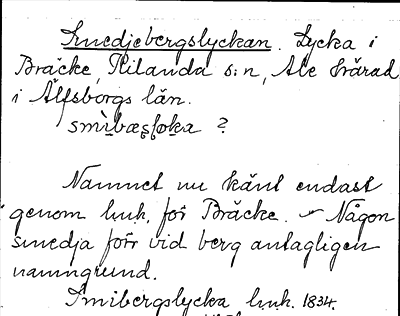 Smedjebergslyckan. Lycka i
Bräcke, Kilanda s:n, Ale härad
i Älfsborgs län.
Namnet nu känt endast
genom huk. för Bräcke. - Någon
smedja förr vid berg antagligen
namngrund.
Smibergslycka huk. 1834.